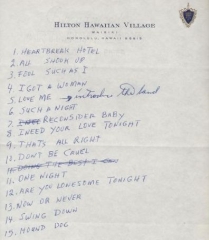 HILTON HAWAIIAN VILLAGE
WAIKIKI
HONOLULU, HAWAII
1. HEARTBREAK HOTEL
2. ALL SHOOK UP
3. FOOL SUCH AS I
4. I GOT A WOMAN
5. LOVE ME - introduce the band
6. SUCH A NIGHT
7. RECONSIDER BABY
8. I NEED YOUR LOVE TONIGHT
9. THATS ALL RIGHT
10. DON'T BE CRUEL
11. ONE NIGHT
12. ARE YOU LONESOME TONIGHT
13. NOW OR NEVER
14. SWING DOWN
15. HOUND DOG